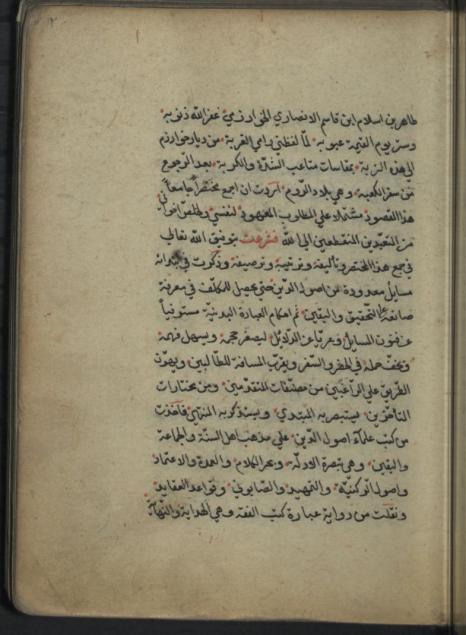 طاهر بن اسلام ابن قاسم الانصاري الخوارزمي غفر الله ذنوبه
وستر يوم القيمة عيوبه لما لفظتني دامي الغربة من ديار خوارزم
الى هذه التربة بمقاسات متاعب الشدة والكربة بعد الرجوع
من سفر الكعبة وهي بلاد الروم اردت ان اجمع مختصرا جامعا في
هذا المقصود مشتملا على المطلوب المعهود لنفسي ولخلص اخواني
من المتعبدين المنقطعين الى الله فشرعت بتوفيق الله تعالى
في جمع هذا المختصر وتأليفه وترتيبه وترصيفه وذكرت في
مسايل معدودة من اصول الدين حتى يحصل للمكلف في معرفة
صانعه التحقيق واليقين ثم احكام العبادة البدنية مستوعبا
عيون المسايل ومعريا عن الدلايل ليصغر حجمه ويسهل فهمه
ويخف حمله في الحضر والسفر ويقرب المسافة للطالبين ويهون
الطريق على الراغبين من مصنفات المتقدمين ومن مختارات
المتأخرين ليستبصر به المبتدي ويستذكر به المنتهي فاخذت
من كتب علماء اصول الدين على مذهب اهل السنة والجماعة
واليقين وهي تبصرة الادلة وبحر الكلام والعمدة والاعتماد
واصول التوكنية والتمهيد والصابوني وقواعد العقايد
ونقلت من رواية عبارة كتب الفقه وهي الهداية والنهاية